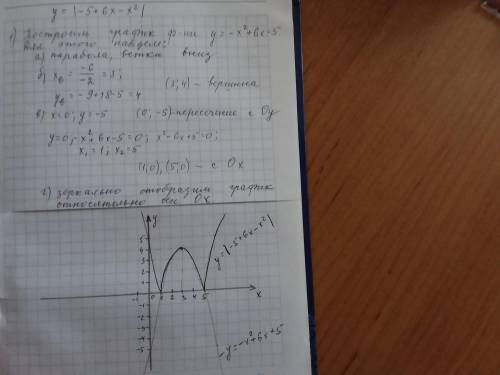 y = |-5+6x-x²|
1) Построим график ф-ии y=-x²+6x-5
для этого найдем:
а) парабола, ветви вниз
б) xв = -6/-2 = 3;
(3;4) - вершина
yв = -9+18-5=4
в) x=0; y=-5 (0;-5)-пересечение с Oy
y=0; -x²+6x-5=0; x²-6x+5=0;
x₁=1; x₂=5
(1;0),(5;0) - с Ox
г) зеркально отобразим график
относительно оси Ox.
y
5
4
3
2
1
-1 0 1 2 3 4 5 x
-1
-2
-3
-4
-5
y=|-5+6x-x²|
y=-x²+6x+5